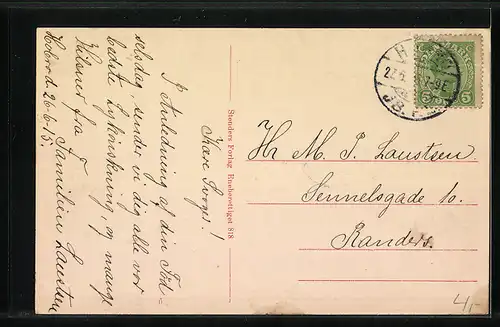 Kære Svoger!
I Anledning af din Fød=
selsdag sender vi dig alle vor
bedste Lykønskning, og mange
Hilsner fra
Familien Laustsen
Hobro d. 26-6-15.
Stenders Forlag Eneberettiget 818
Hr M. P. Laustsen.
Sennelsgade 10.
Randers.
5 5
4,-